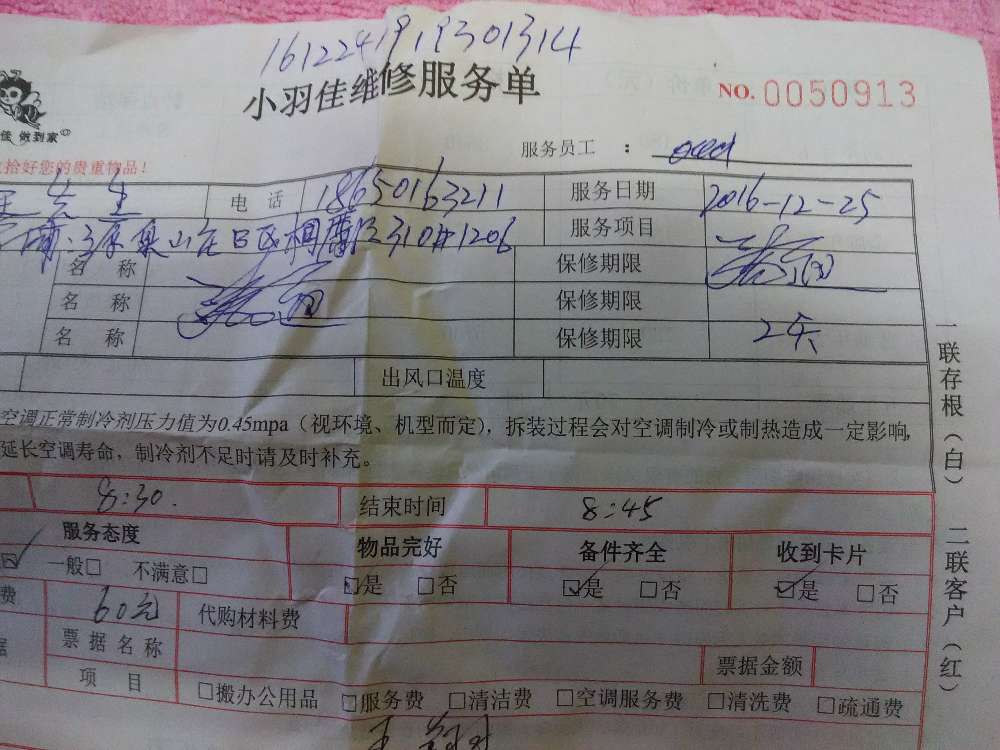 1612241919301314
小羽佳维修服务单
NO. 0050913
佳 做到家
服务员工 ：
拾好您的贵重物品!
电 话 18650163211 服务日期 2016-12-25
310#1206 服务项目
名 称 保修期限
名 称 保修期限
名 称 保修期限 2天
出风口温度
空调正常制冷剂压力值为0.45mpa（视环境、机型而定），拆装过程会对空调制冷或制热造成一定影响，
延长空调寿命，制冷剂不足时请及时补充。
8:30. 结束时间 8:45
服务态度 物品完好 备件齐全 收到卡片
一般□ 不满意□ ☑是 □否 ☑是 □否 ☑是 □否
费 60元 代购材料费
票据名称 票据金额
项 目 □搬办公用品 □服务费 □清洁费 □空调服务费 □清洗费 □疏通费
一联存根（白） 二联客户（红）